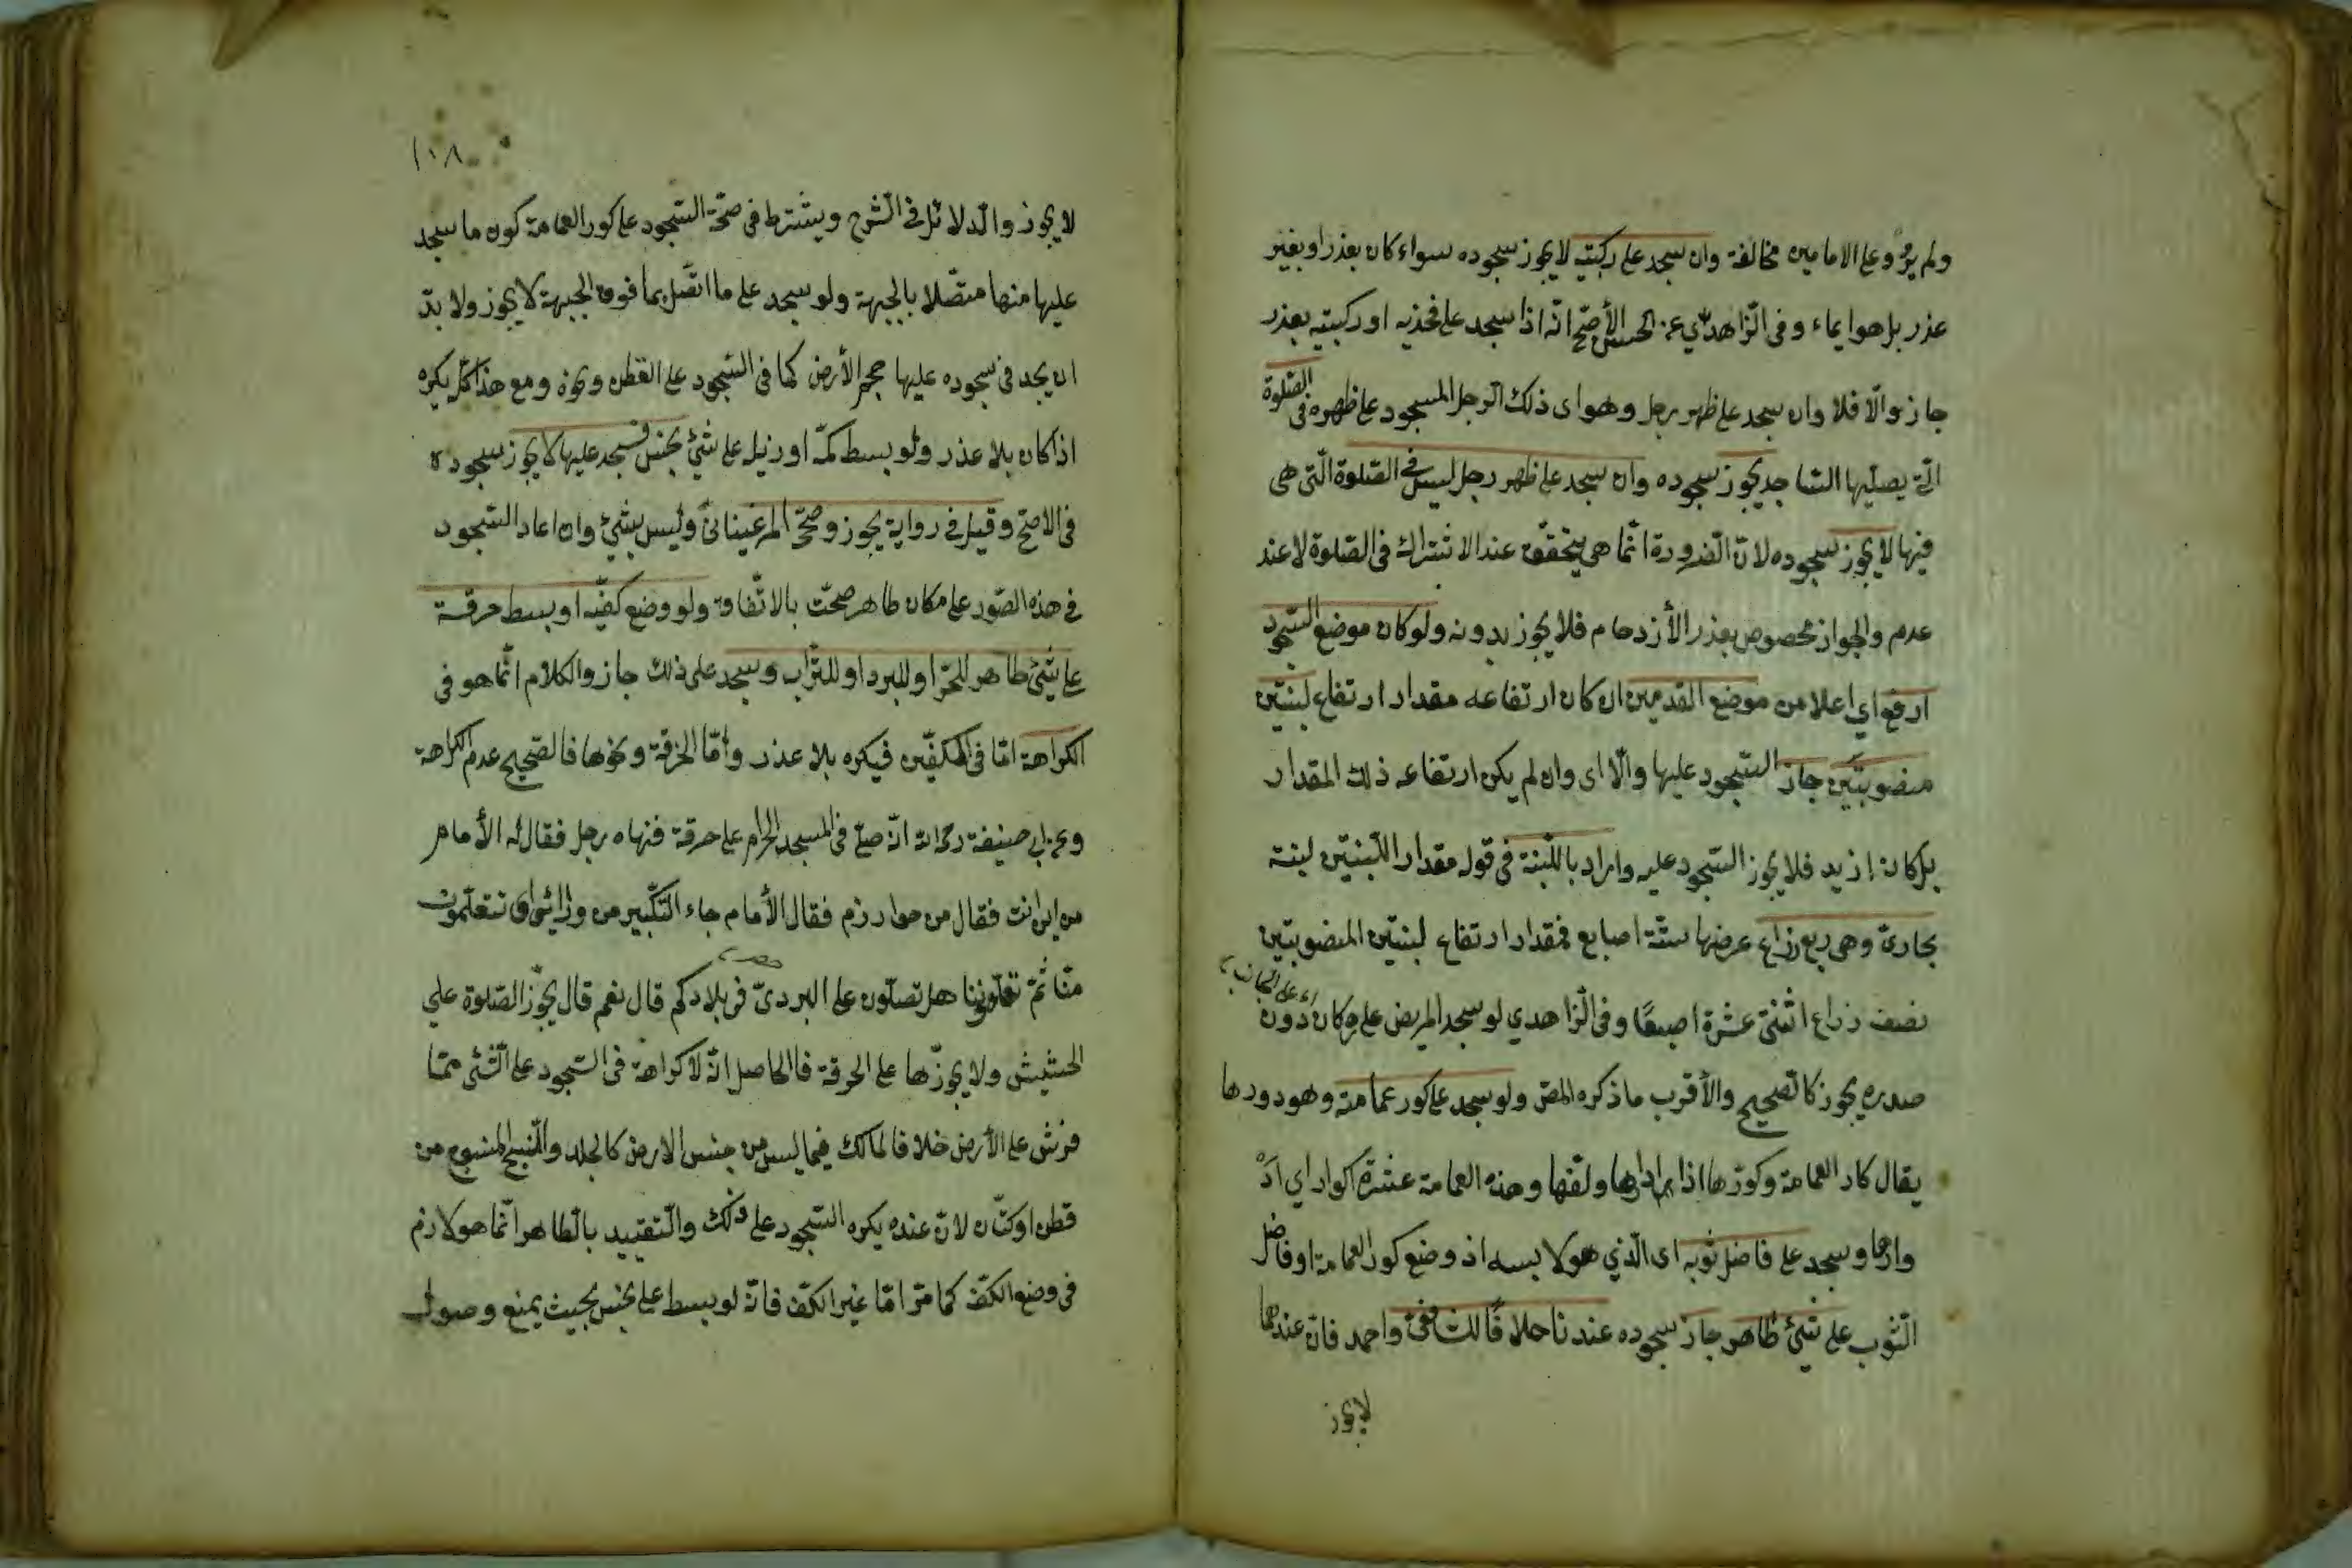 ولم يرو على الامامين مخالفة وان سجد على ركبتيه لا يجوز سجوده سواء كان بعذر او بغير
عذر بل هو ايماء وفى الزّاهدي عن الحسن الأصحّ انّه اذا سجد على فخذيه او ركبتيه بعذر
جاز والّا فلا وان سجد على ظهر رجل وهو اى ذلك الرجل المسجود على ظهره فى الصّلوة
الّتي يصلّيها السّاجد يجوز سجوده وان سجد على ظهر رجل ليس فى الصّلوة الّتى هى
فيها لا يجوز سجوده لانّ الضّرورة انّما هى يتحقّق عند الاشتراك فى الصّلوة لا عند
عدم والجواز مخصوص بعذر الأزدحام فلا يجوز بدونه ولو كان موضع السّجود
ارفع اي اعلا من موضع القدمين ان كان ارتفاعه مقدار ارتفاع لبنتين
منصوبتين جاز السّجود عليها والّا اى وان لم يكن ارتفاعه ذلك المقدار
بل كان ازيد فلا يجوز السّجود عليه واراد باللّبنة فى قول مقدار اللّبنتين لبنة
بخارىّ وهى ربع زراع عرضها ستّة اصابع فمقدار ارتفاع لبنتين المنصوبتين
نصف زراع اثنتى عشرة اصبعًا وفى الزّاهدي لو سجد المريض على دكان دون
صدره يجوز كالصّحيح والأقرب ما ذكره المص ولو سجد على كور عمامته وهو دورها
يقال كار العمامة وكوّرها اذا ادارها ولفّها وهذه العمامة عشرة اكوار اي اد
وارها وسجد على فاضل ثوبه اى الّذي هو لابسه اذ وضع كور العمامة او فاضل
الثّوب على شئ طاهر جاز سجوده عندنا خلافًا للشافعىّ واحمد فانّ عندهما
لا يجوز
١٠٨
لا يجوز والدلائل فى الشّرح ويشترط فى صحّة السّجود على كور العمامة كون ما سجد
عليها منها متصّلا بالجبهة ولو سجد على ما اتّصل بما فوق الجبهة لا يجوز ولا بدّ
ان يجد فى سجوده عليها حجم الأرض كما فى السّجود على القطن ونحوه ومع هذا كلّه يكره
اذا كان بلا عذر ولو بسط كمّه او زيله على شئ نجس فسجد عليها لا يجوز سجوده
فى الاصحّ وقيل فى رواية يجوز وصحّحه المرغينانىّ وليس بشئ وان اعاد السّجود
فى هذه الصّور على مكان طاهر صحّت بالاتّفاق ولو وضع كفّيه او بسط خرقة
على شئ طاهر للحرّ او للبرد او للتّراب وسجد على ذلك جاز والكلام انّما هو فى
الكراهة امّا فى الكفّين فيكره بلا عذر وامّا الخرقة ونحوها فالصّحيح عدم الكراهة
وعن ابى حنيفة انّه صلّى فى المسجد الحرام على خرقة فنهاه رجل فقال له الأمام
من اين انت فقال من خوارزم فقال الأمام جاء التّكبير من ورائى اى تتعلّمون
منّا ثمّ تعلّموننا هل تصلّون على البردىّ فى بلادكم قال نعم قال يجوّز الصّلوة على
الحشيش ولا يجوّزها على الخرقة فالحاصل انّه لا كراهة فى السّجود على الشّئ ممّا
فرش على الأرض خلافا لمالك فيما ليس من جنس الارض كالجلد والنّسيج المنسوج من
قطن او كتّان لانّ عنده يكره السّجود على ذلك والتّقييد بالطّاهر انّما هو لازم
فى وضع الكفّ كما مرّ امّا غير الكفّ فانّه لو بسط على نجس بحيث يمنع وصول